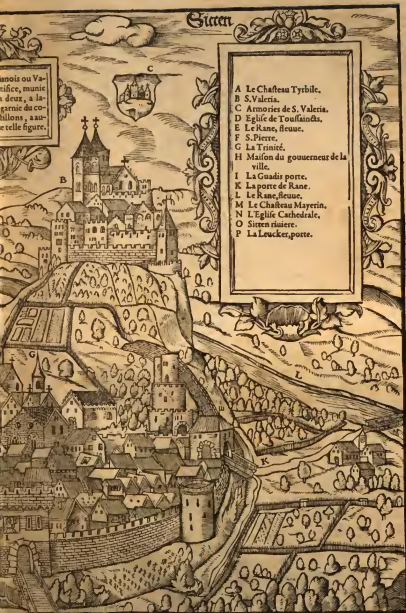 Sitten
anois ou Va-
tifice, munie
deux, a la-
garnie du co-
hillons, a au-
e telle figure.
C
A Le Chasteau Tyrbile.
B S. Valeria.
C Armories de S. Valeria.
D Eglise de Toussaincts.
E Le Rane, fleuue.
F S. Pierre.
G La Trinité.
H Maison du gouuerneur de la
ville.
I La Guadis porte.
K La porte de Rane.
L Le Rane, fleuue.
M Le Chasteau Mayerin,
N L'Eglise Cathedrale,
O Sitten riuiere.
P La Leucker, porte.
B
G
L
K